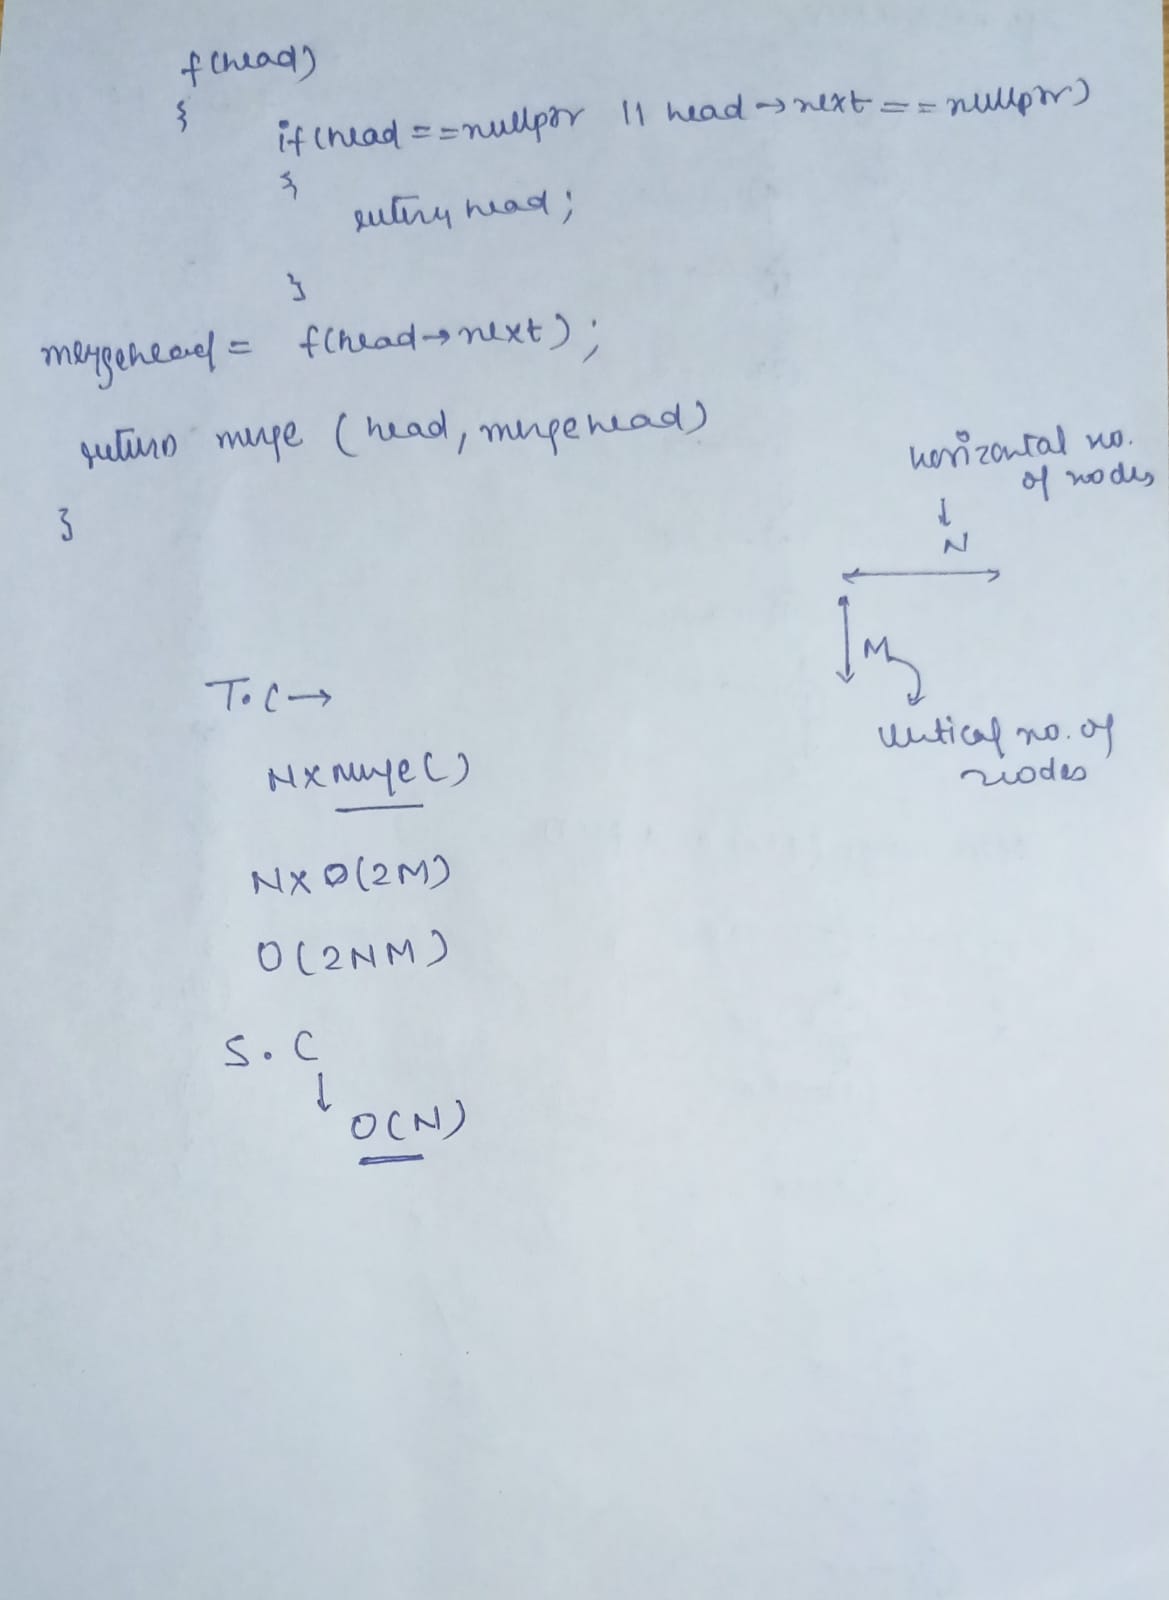 f(head)
{
if(head==nullptr || head→next==nullptr)
{
return head;
}
mergehead = f(head→next);
return merge (head, mergehead)
}
horizontal no.
of nodes
↓
N
M
vertical no. of
nodes
T.C→
N×merge()
N×O(2M)
O(2NM)
S.C
↓
O(N)